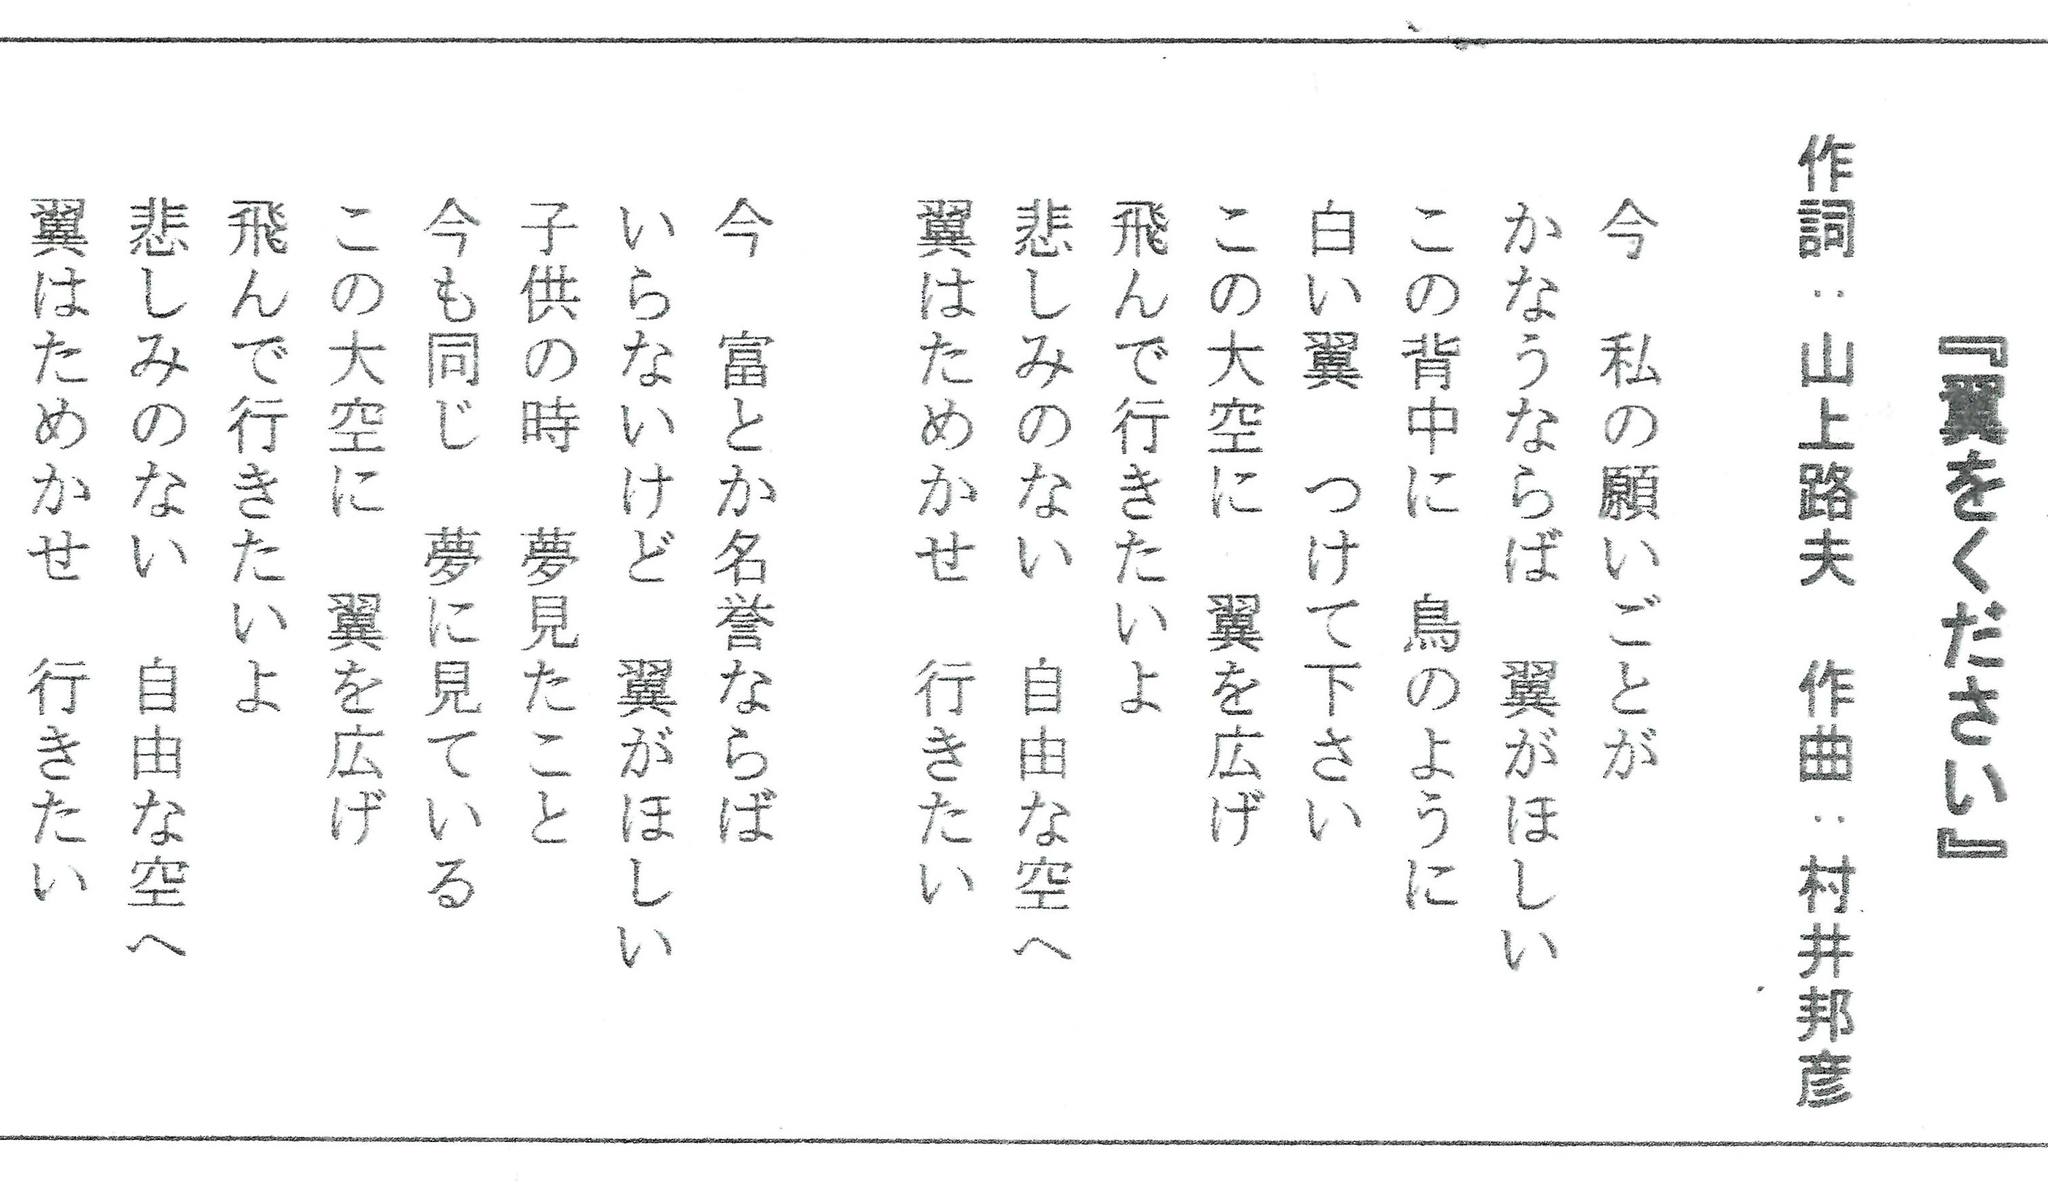 『翼をください』
作詞：山上路夫　作曲：村井邦彦
今　私の願いごとが
かなうならば　翼がほしい
この背中に　鳥のように
白い翼　つけて下さい
この大空に　翼を広げ
飛んで行きたいよ
悲しみのない　自由な空へ
翼はためかせ　行きたい
今　富とか名誉ならば
いらないけど　翼がほしい
子供の時　夢見たこと
今も同じ　夢に見ている
この大空に　翼を広げ
飛んで行きたいよ
悲しみのない　自由な空へ
翼はためかせ　行きたい